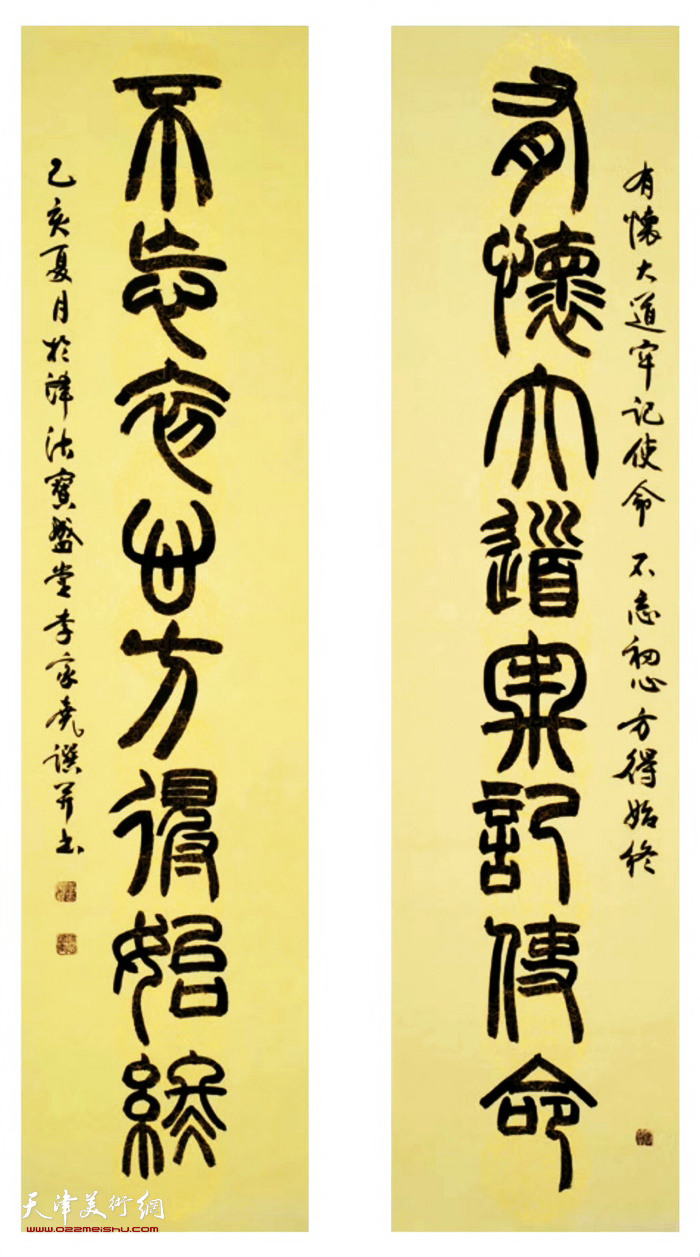 有懷大道牢記使命 不忘初心方得始終
有懷大道牢記使命
不忘初心方得始終
己亥夏月於津沽寶盤堂李家堯撰并書
天津美術網
www.022meishu.com